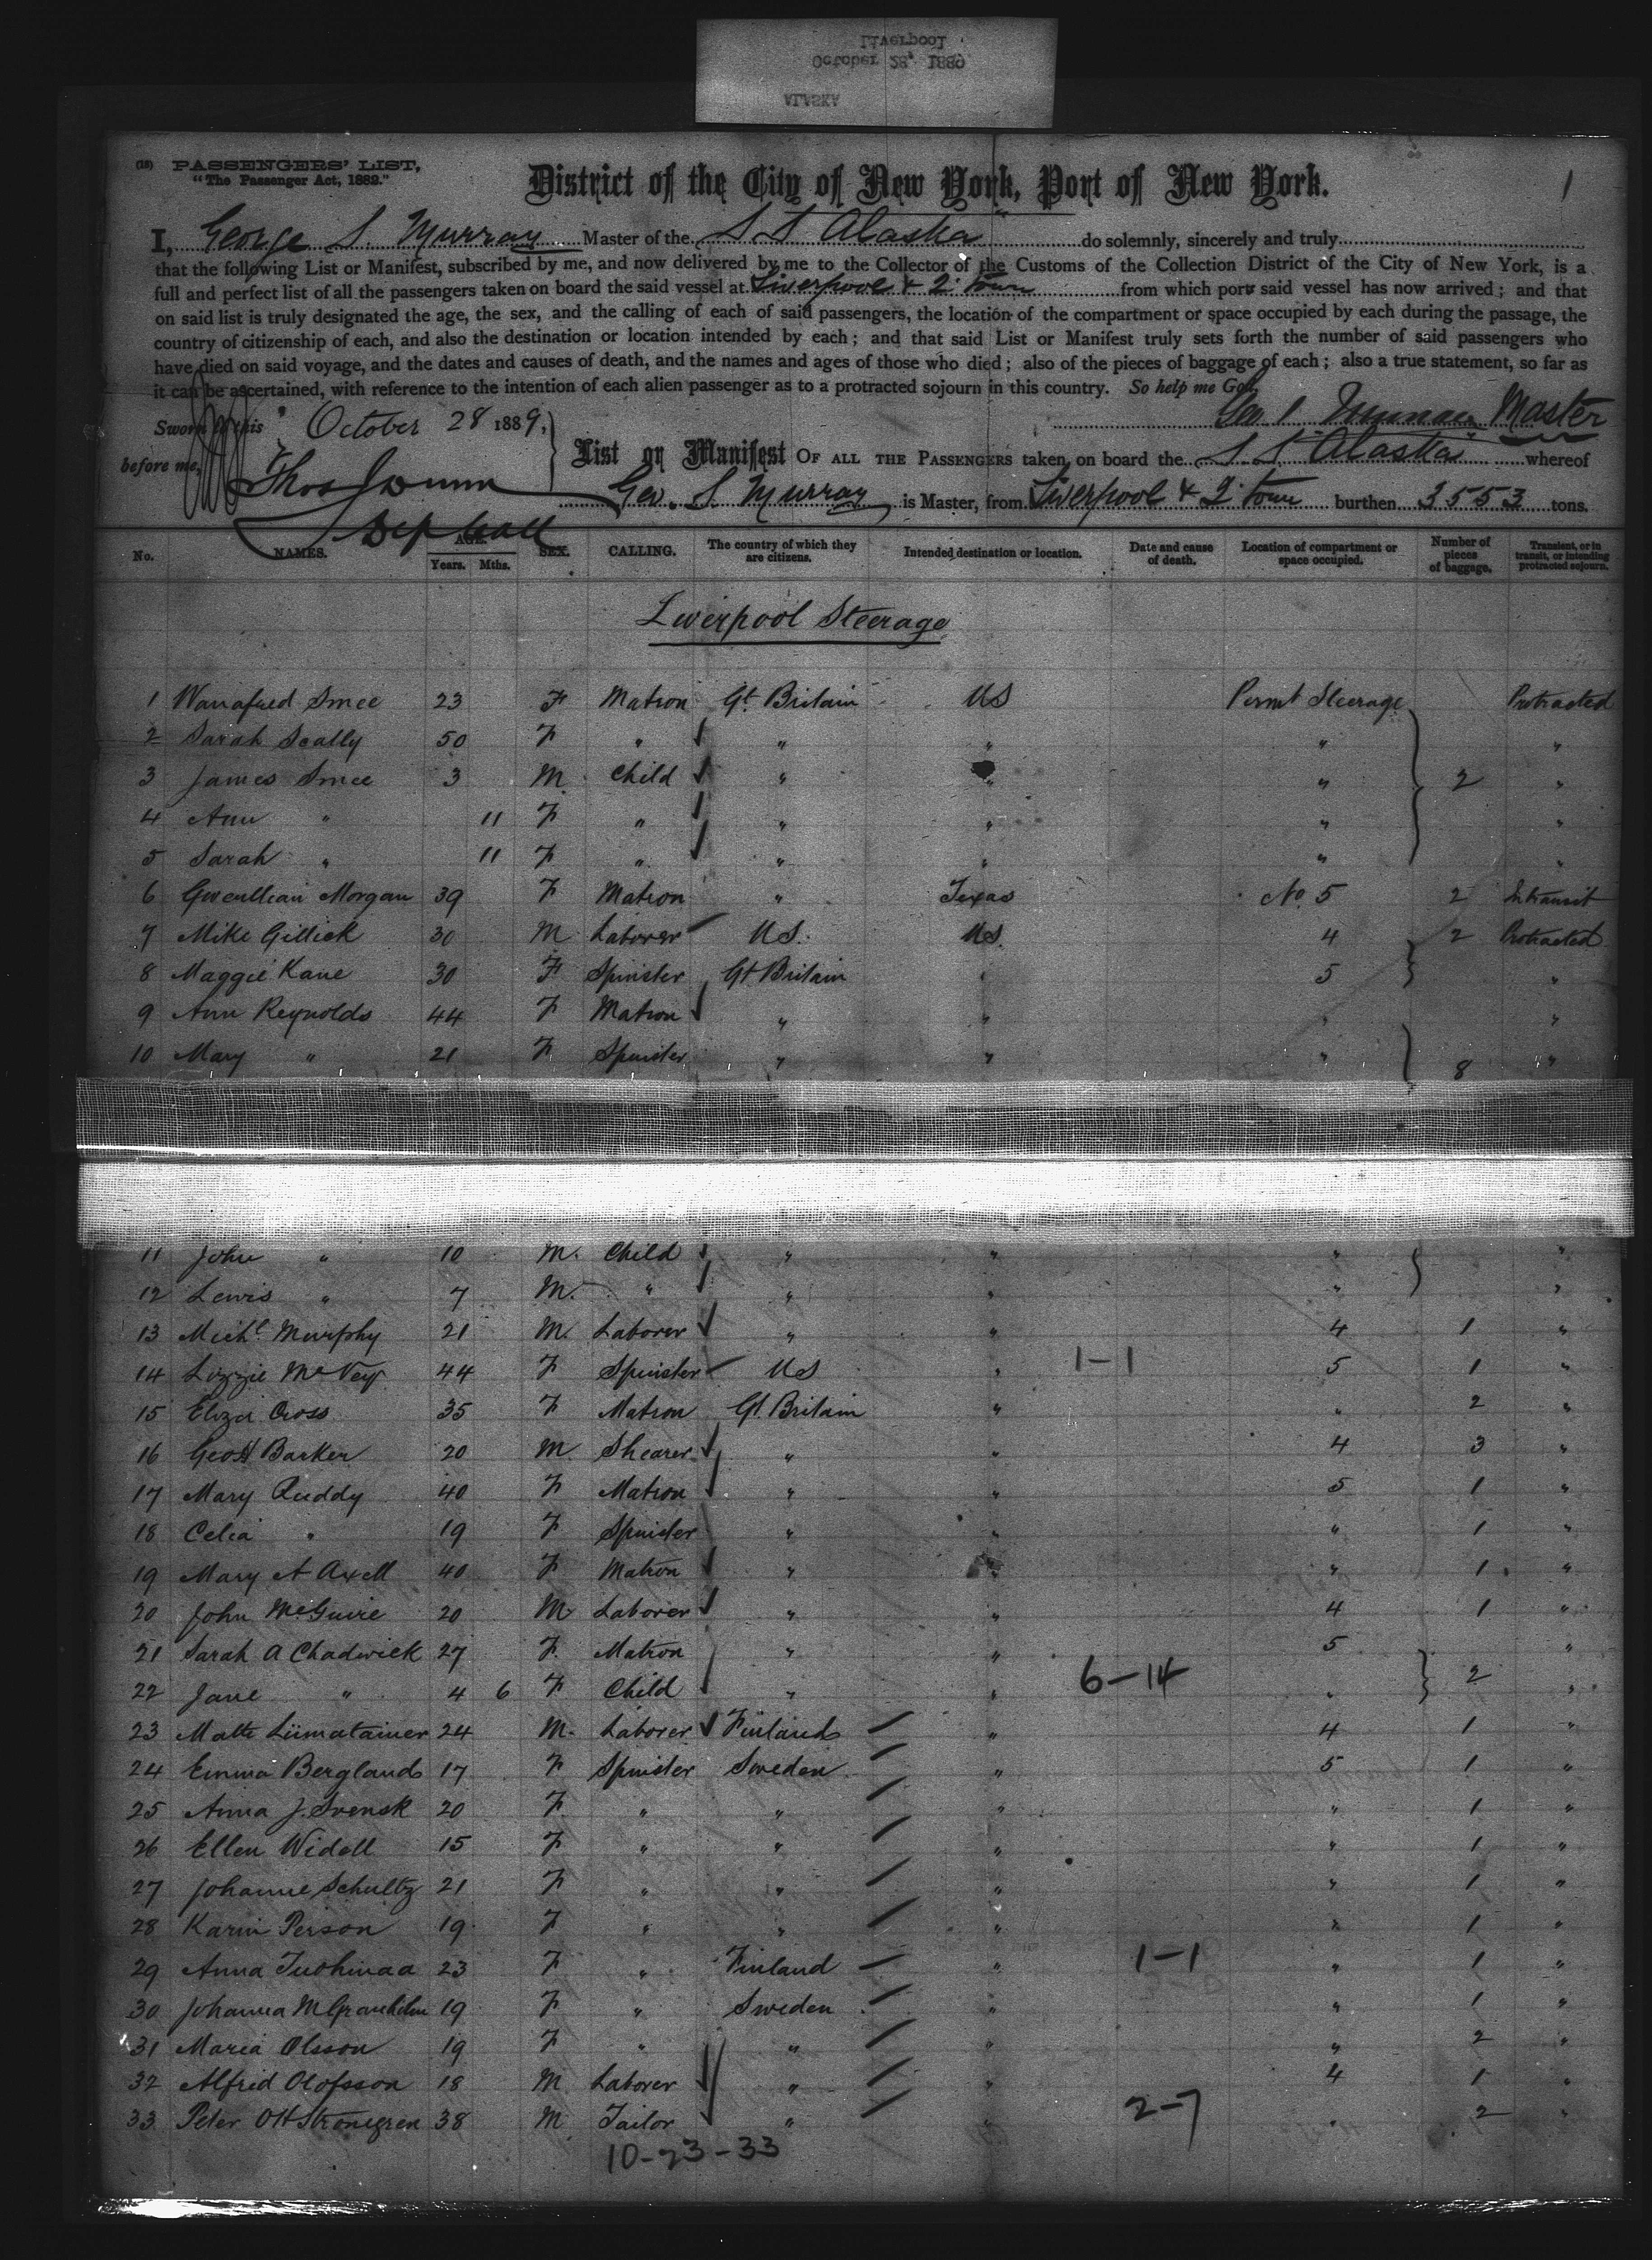 Liverpool
October 28, 1889
ALASKA
(18) PASSENGERS' LIST,
"The Passenger Act, 1882."
District of the City of New York, Port of New York.
1
I, George S. Murray Master of the S.S Alaska do solemnly, sincerely and truly
that the following List or Manifest, subscribed by me, and now delivered by me to the Collector of the Customs of the Collection District of the City of New York, is a
full and perfect list of all the passengers taken on board the said vessel at Liverpool & Q. town from which port said vessel has now arrived; and that
on said list is truly designated the age, the sex, and the calling of each of said passengers, the location of the compartment or space occupied by each during the passage, the
country of citizenship of each, and also the destination or location intended by each; and that said List or Manifest truly sets forth the number of said passengers who
have died on said voyage, and the dates and causes of death, and the names and ages of those who died; also of the pieces of baggage of each; also a true statement, so far as
it can be ascertained, with reference to the intention of each alien passenger as to a protracted sojourn in this country. So help me God,
Sworn to this October 28 1889, Geo. S. Murray Master
before me, List or Manifest OF ALL THE PASSENGERS taken on board the S.S. Alaska whereof
Geo. S. Murray is Master, from Liverpool & Q. town burthen 3553 tons.
No. NAMES. AGE. Years. Mths. SEX. CALLING. The country of which they are citizens. Intended destination or location. Date and cause of death. Location of compartment or space occupied. Number of pieces of baggage. Transient, or in transit, or intending protracted sojourn.
Liverpool Steerage
1 Smee 23 F Matron Gt. Britain US Steerage Protracted
2 Sarah Scally 50 F " " " " "
3 James Smee 3 M. Child " " " 2 "
4 Ann " 11 F " " " " "
5 Sarah " 11 F " " " " "
6 Gwenllian Morgan 39 F Matron " Texas No. 5 2 Intransit
7 Mike Gillick 30 M Laborer US. US. 4 2 Protracted
8 Maggie Kane 30 F Spinster Gt Britain " 5 "
9 Ann Reynolds 44 F Matron " " " "
10 Mary " 21 F Spinster " " " 8 "
11 John " 10 M. Child " " " "
12 Lewis " 7 M. " " " " "
13 Michl. Murphy 21 M. Laborer " " 4 1 "
14 Lizzie McVey 44 F Spinster US " 1-1 5 1 "
15 Eliza Cross 35 F Matron Gt. Britain " " 2 "
16 Geo H Barker 20 M Shearer " " 4 3 "
17 Mary Ruddy 40 F Matron " " 5 1 "
18 Celia " 19 F Spinster " " " 1 "
19 Mary A Axell 40 F Matron " " 1 "
20 John McGuire 20 M Laborer " " 4 1 "
21 Sarah A Chadwick 27 F. Matron " " 5 "
22 Jane " 4 6 F Child " " 6-14 " 2 "
23 Matts Liimatainer 24 M. Laborer Finland " 4 1 "
24 Emma Bergland 17 F Spinster Sweden " 5 1 "
25 Anna J. Svensk 20 F. " " " " 1 "
26 Ellen Widell 15 F " " " " 1 "
27 Johanne Schultz 21 F " " " " 1 "
28 Karin Person 19 F " " " " 1 "
29 Anna 23 F " Finland " 1-1 " 1 "
30 Johanna M Granholm 19 F " Sweden " " 1 "
31 Maria Olsson 19 F " " " " 2 "
32 Alfred Olofsson 18 M Laborer " " 4 1 "
33 Peter 38 M. Tailor " " 2-7 " 2 "
10-23-33